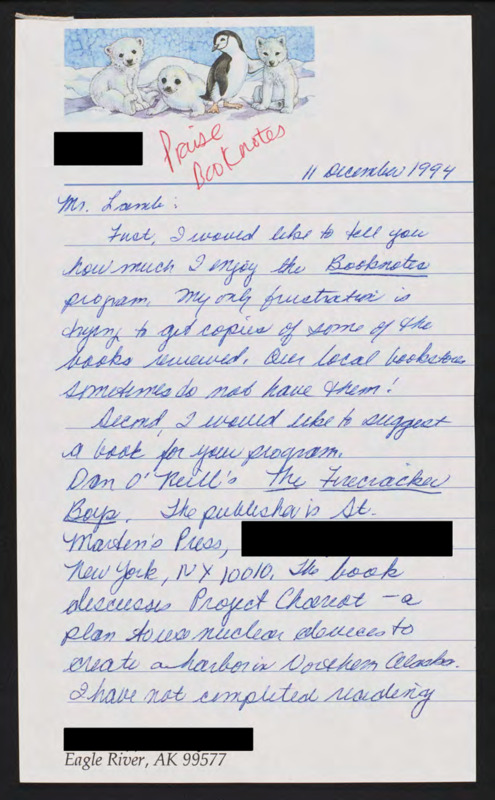 Praise
Booknotes
11 December 1994
Mr. Lamb:
First, I would like to tell you
how much I enjoy the Booknotes
program. My only frustration is
trying to get copies of some of the
books reviewed. Our local bookstores
sometimes do not have them!
Second, I would like to suggest
a book for your program.
Dan O'Neill's The Firecracker
Boys. The publisher is St.
Martin's Press,
New York, NY 10010. The book
discusses Project Chariot - a
plan to use nuclear devices to
create a harbor in Northern Alaska.
I have not completed reading
Eagle River, AK 99577